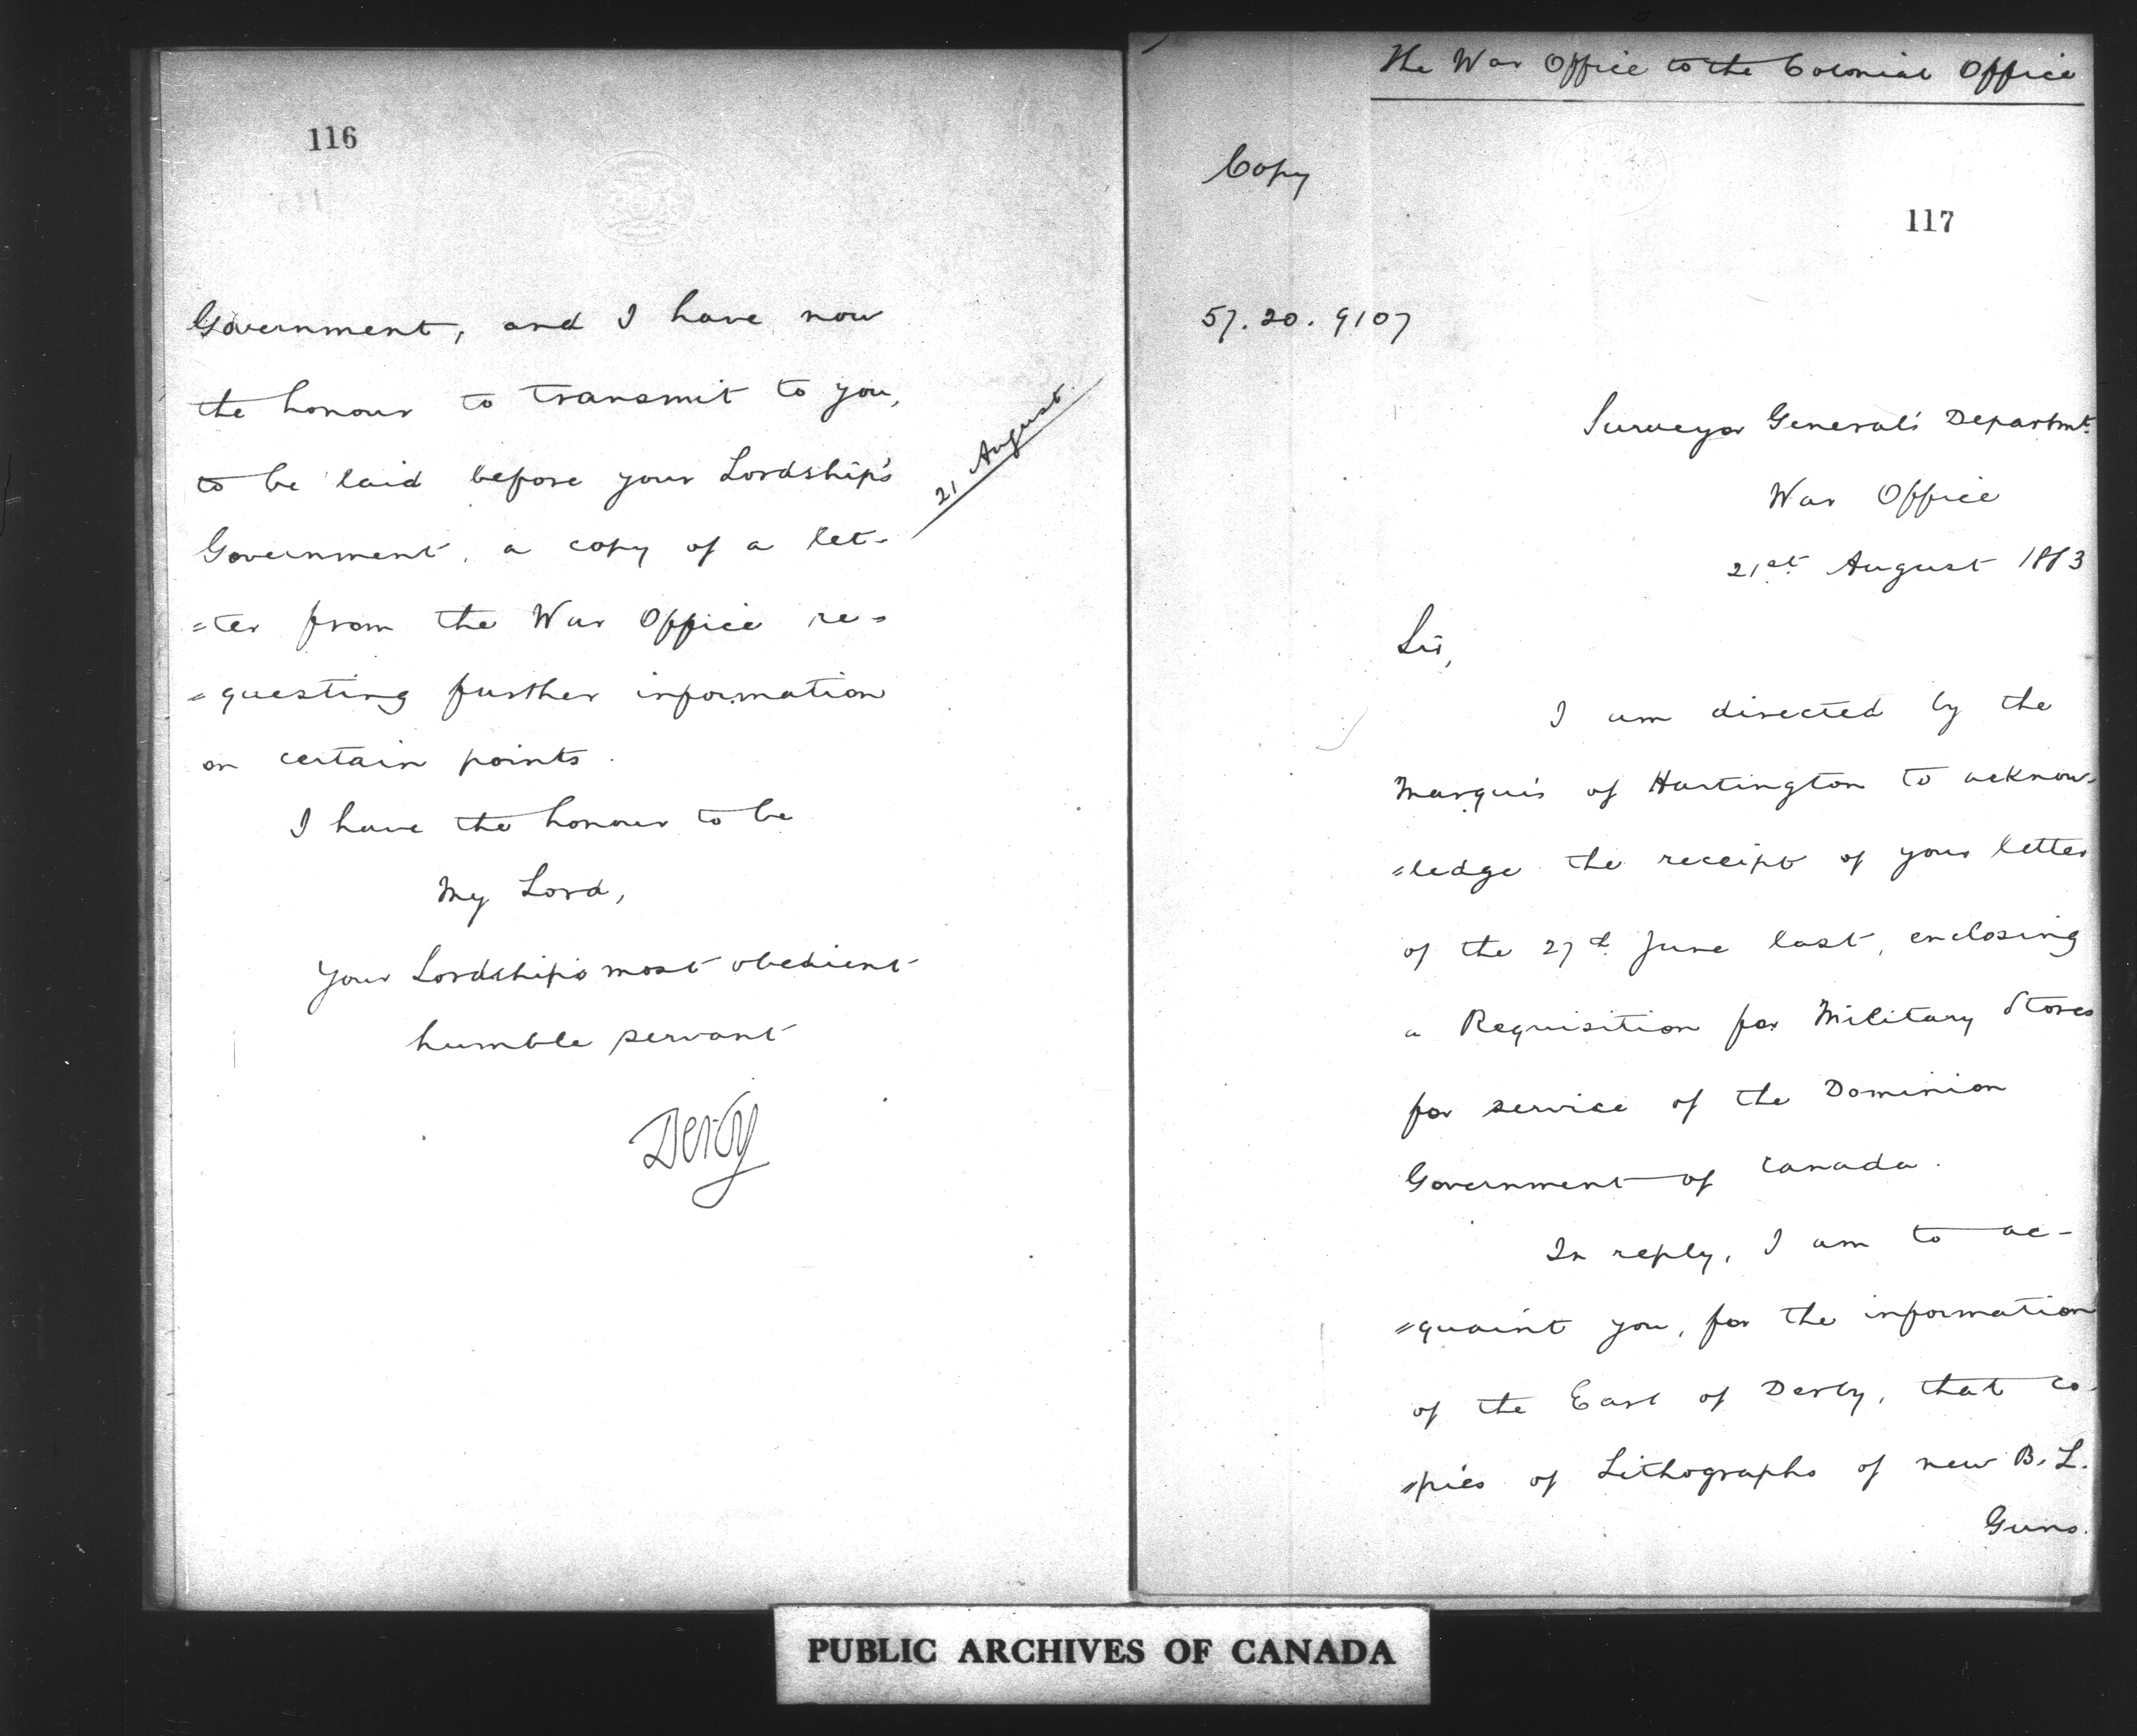 116
Government, and I have now
the honour to transmit to you,
to be laid before your Lordship's
Government, a copy of a let-
=ter from the War Office re=
=questing further information
on certain points.
21 August.
I have the honour to be
My Lord,
Your Lordship's most obedient
humble servant
Derby
The War Office to the Colonial Office
Copy
117
57. 20. 9107
Surveyor General's Departmt.
War Office
21st August 1883
Sir,
I am directed by the
Marquis of Hartington to acknow-
=ledge the receipt of your letter
of the 27th June last, enclosing
a Requisition for Military Stores
for service of the Dominion
Government of Canada.
In reply, I am to ac-
=quaint you, for the information
of the Earl of Derby, that co-
=pies of Lithographs of new B.L.
Guns.
PUBLIC ARCHIVES OF CANADA